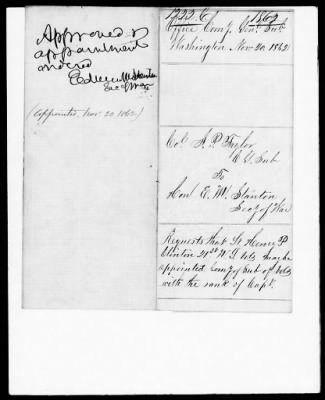 Approved &
appointment
ordered
Edwin M Stanton
Sec of War
(Appointed, Nov. 20 1862)
1862
Office Com'y Gen'l Sub
Washington Nov. 20, 1862
Col J. P. Taylor
C G Sub
To
Hon E. M. Stanton
Sec'y of War
Requests that Lt Henry P
Clinton 21st N. J. Vols may be
appointed Com'y of Sub of Vols
with the rank of Capt.